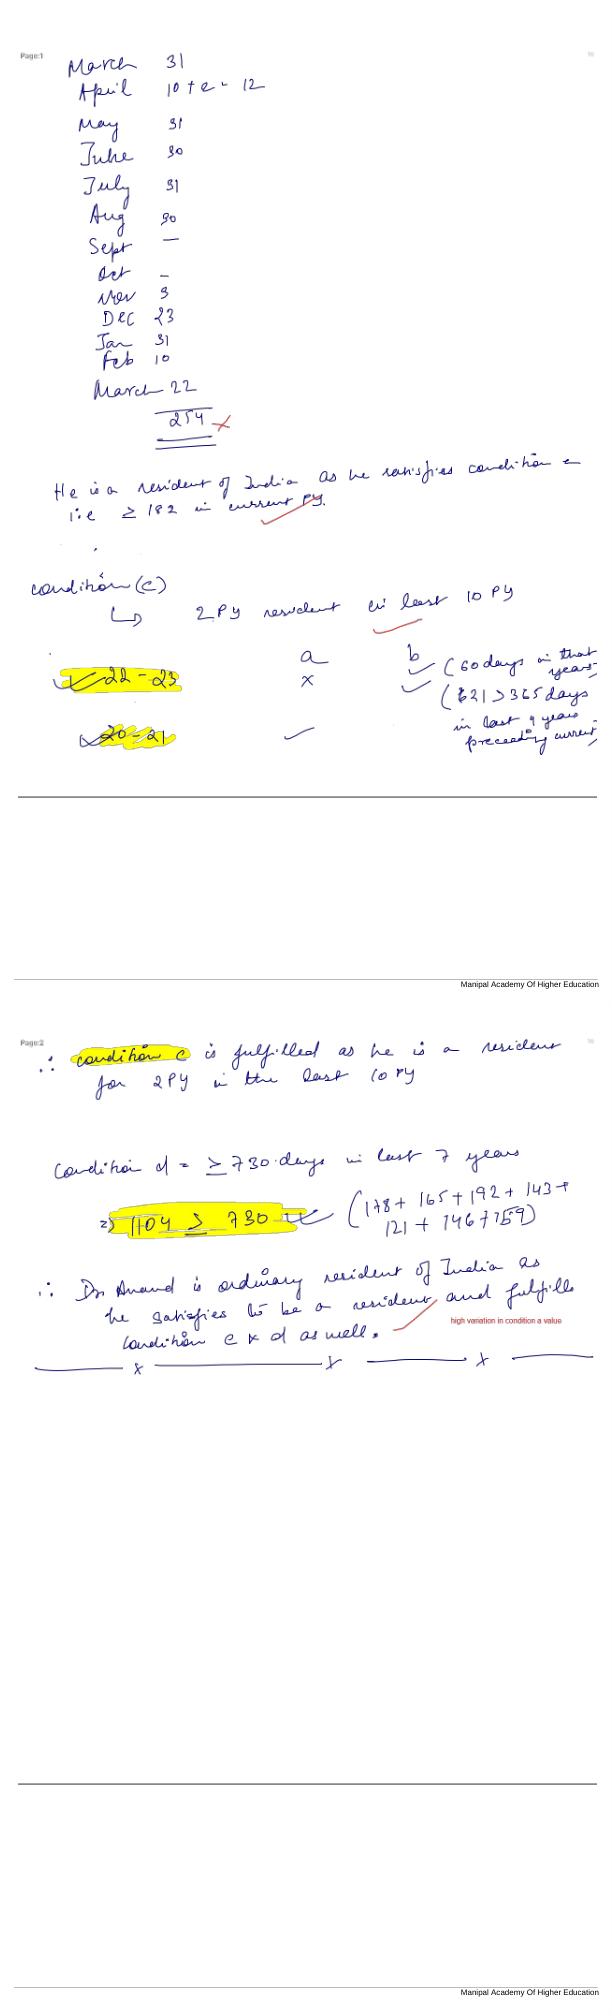 Page:1
March 31
April 10 + 2 - 12
May 31
June 30
July 31
Aug 30
Sept —
Oct -
Nov 3
Dec 23
Jan 31
Feb 10
March 22
254
He is a resident of India as he satisfies condition a
i.e ≥ 182 in current PY.
condition (c)
↳ 2 PY resident in least 10 PY
a b
22 - 23 x ✓ (60 days in that years)
✓ (621 > 365 days
in last 4 years
preceeding current)
20 - 21 ✓
Manipal Academy Of Higher Education
Page:2
∴ condition c is fulfilled as he is a resident
for 2 PY in the last 10 PY
Condition d = ≥ 730 days in last 7 years
=) 1104 ≥ 730 (178 + 165 + 192 + 143 +
121 + 146 + 159)
∴ Dr Anand is ordinary resident of India as
he satisfies to be a resident and fulfills
condition c & d as well.
high variation in condition a value
x x x
Manipal Academy Of Higher Education